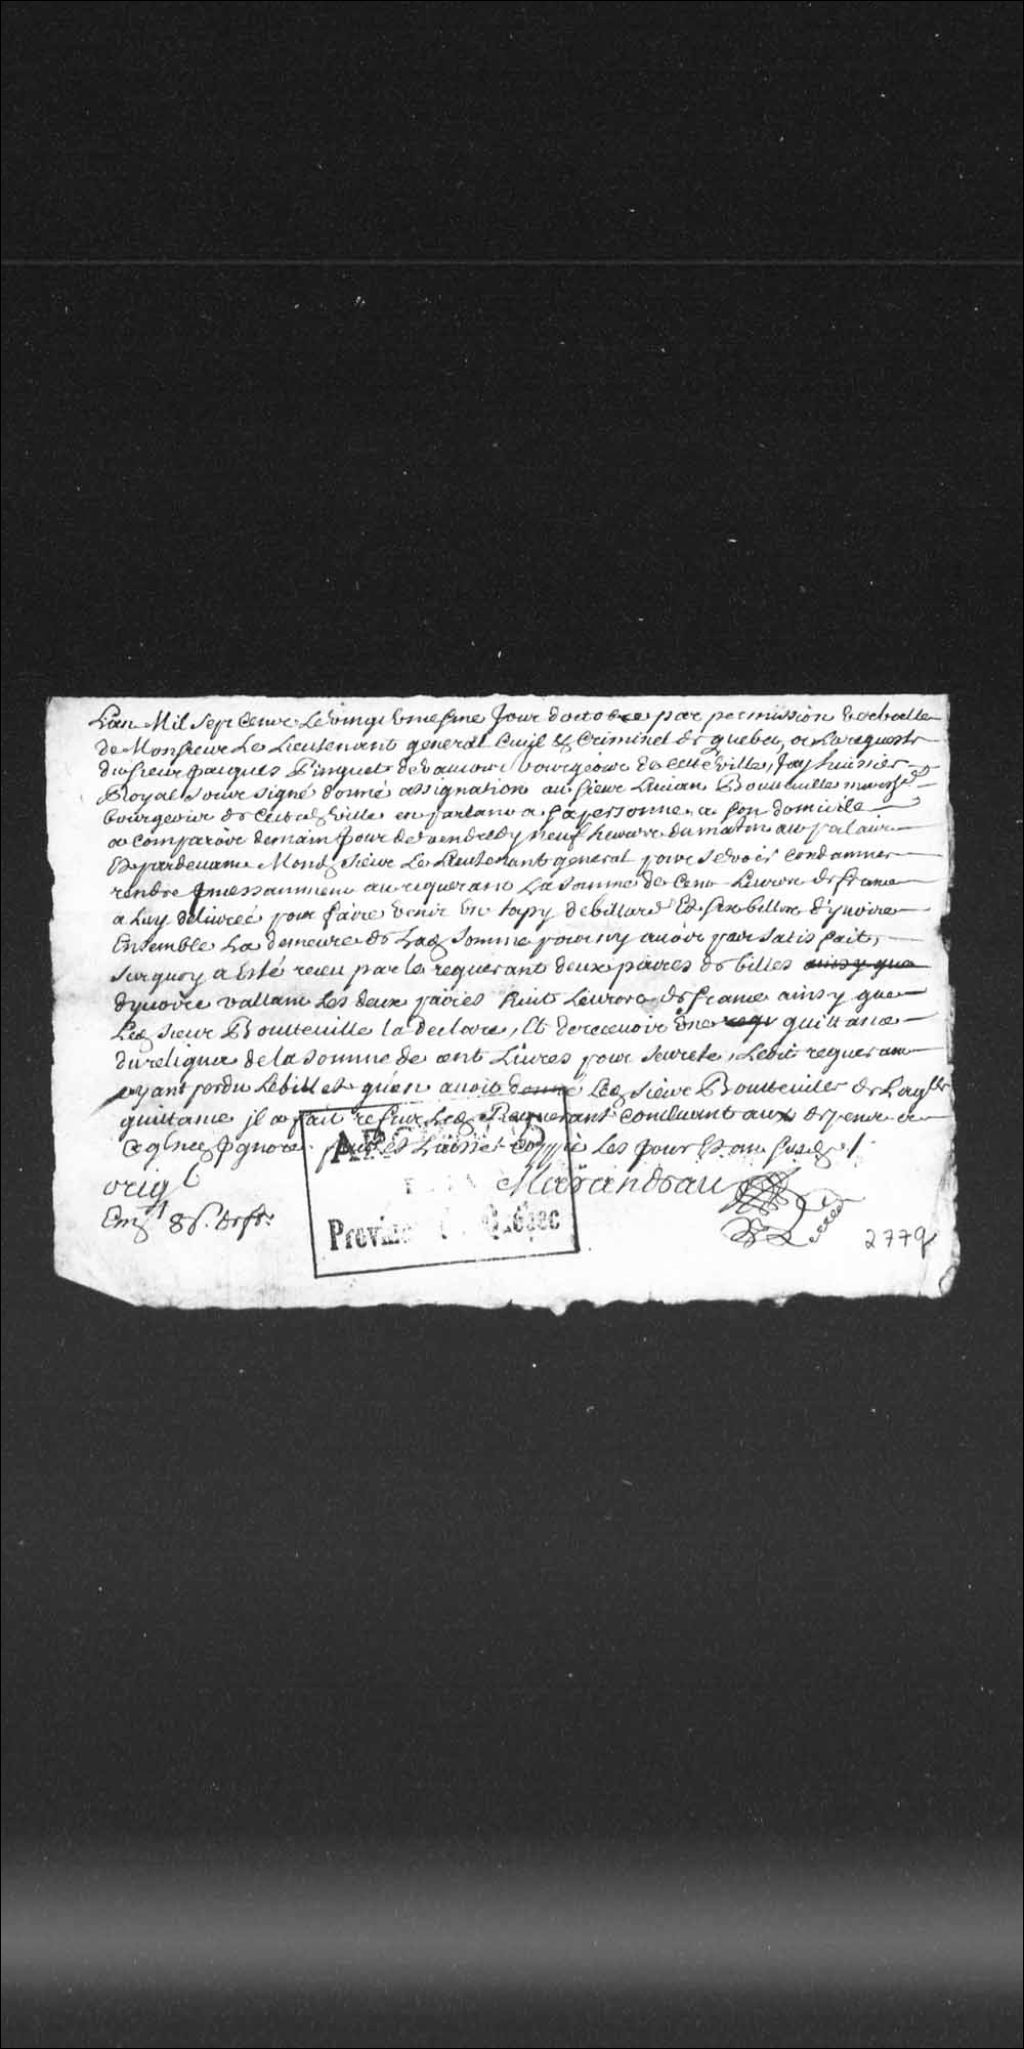 Lan Mil Sept Cent Le vingt Uniesme Jour doctobre par permission verballe
de Monsieur Le Lieutenant general Civil & Criminel de quebec, a Larequeste
du sieur Jacques Pinguet de Vaucour bourgeois de cette ville, Jay huissier
Royal Sous signé donné assignation au sieur Lucian Boutteville march
bourgeois de cette ville en parlant a sa personne a son domicile
a comparoir demain Jour de vendredy neuf heures du matin au palais
Et pardevant Mond Sieur Le Lieutenant general pour se voir condamner
rendre Jncessamment au requerant La somme de Cent Livres de france
a Luy delivreé pour faire venir un tapy de billard Et six billes d'yvoire
Ensemble La demeure de Lad Somme pour ny avoir par satisfait,
surquoy a Esté receu par le requerant deux paires de billes ainsy que
dyvoire vallant Les deux paires huit Livres de france ainsy que
Led sieur Boutteville la declare, Et de recevoir une requ quittance
du reliqua de la somme de cent Livres pour seureté, Ledit requerant
ayant perdu Le billet qu'en avoit donné Led sieur Boutteville de Laq
quittance il a fait refus Led Requerant concluant aux depens a
ce quil nen Jgnore Laissé Coppie Les Jour Et an susd /.
orig
Marandeau
Province de Québec
2779